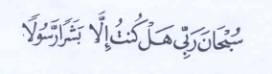 سُبْحَانَ رَبِّي هَلْ كُنتُ إِلَّا بَشَرًا رَّسُولًا